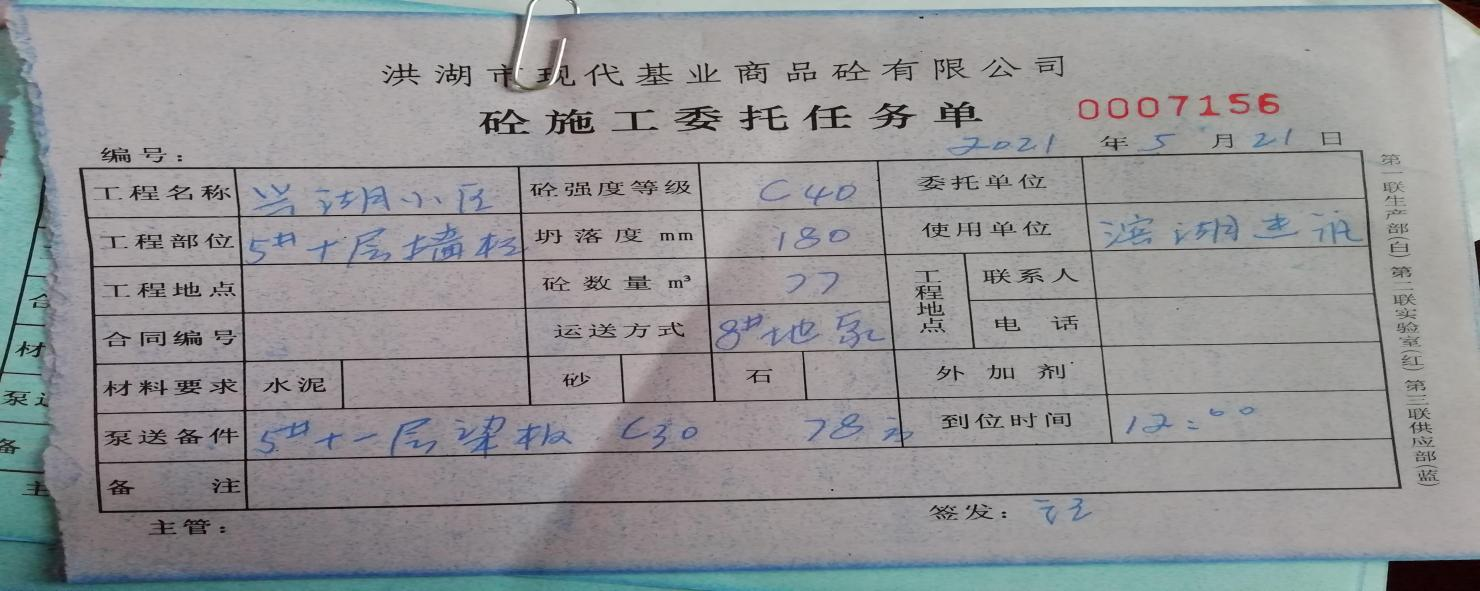 洪湖市现代基业商品砼有限公司
砼施工委托任务单 0007156
编号： 2021 年 5 月 21 日
工程名称 兴湖小区 砼强度等级 C40 委托单位
工程部位 5# 十层墙柱 坍落度 mm 180 使用单位 滨湖建筑
工程地点 砼数量 m³ 77 工程地点 联系人
合同编号 运送方式 8#地泵 电话
材料要求 水泥 砂 石 外加剂
泵送备件 5# 十一层梁板 C30 78方 到位时间 12:00
备注
主管： 签发：
第一联生产部(白) 第二联实验室(红) 第三联供应部(蓝)
合
材
泵送
备
主